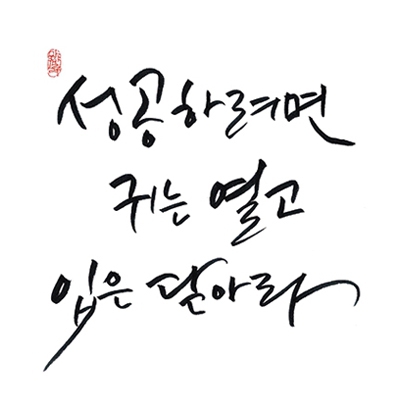 성공하려면
귀는 열고
입은 닫아라